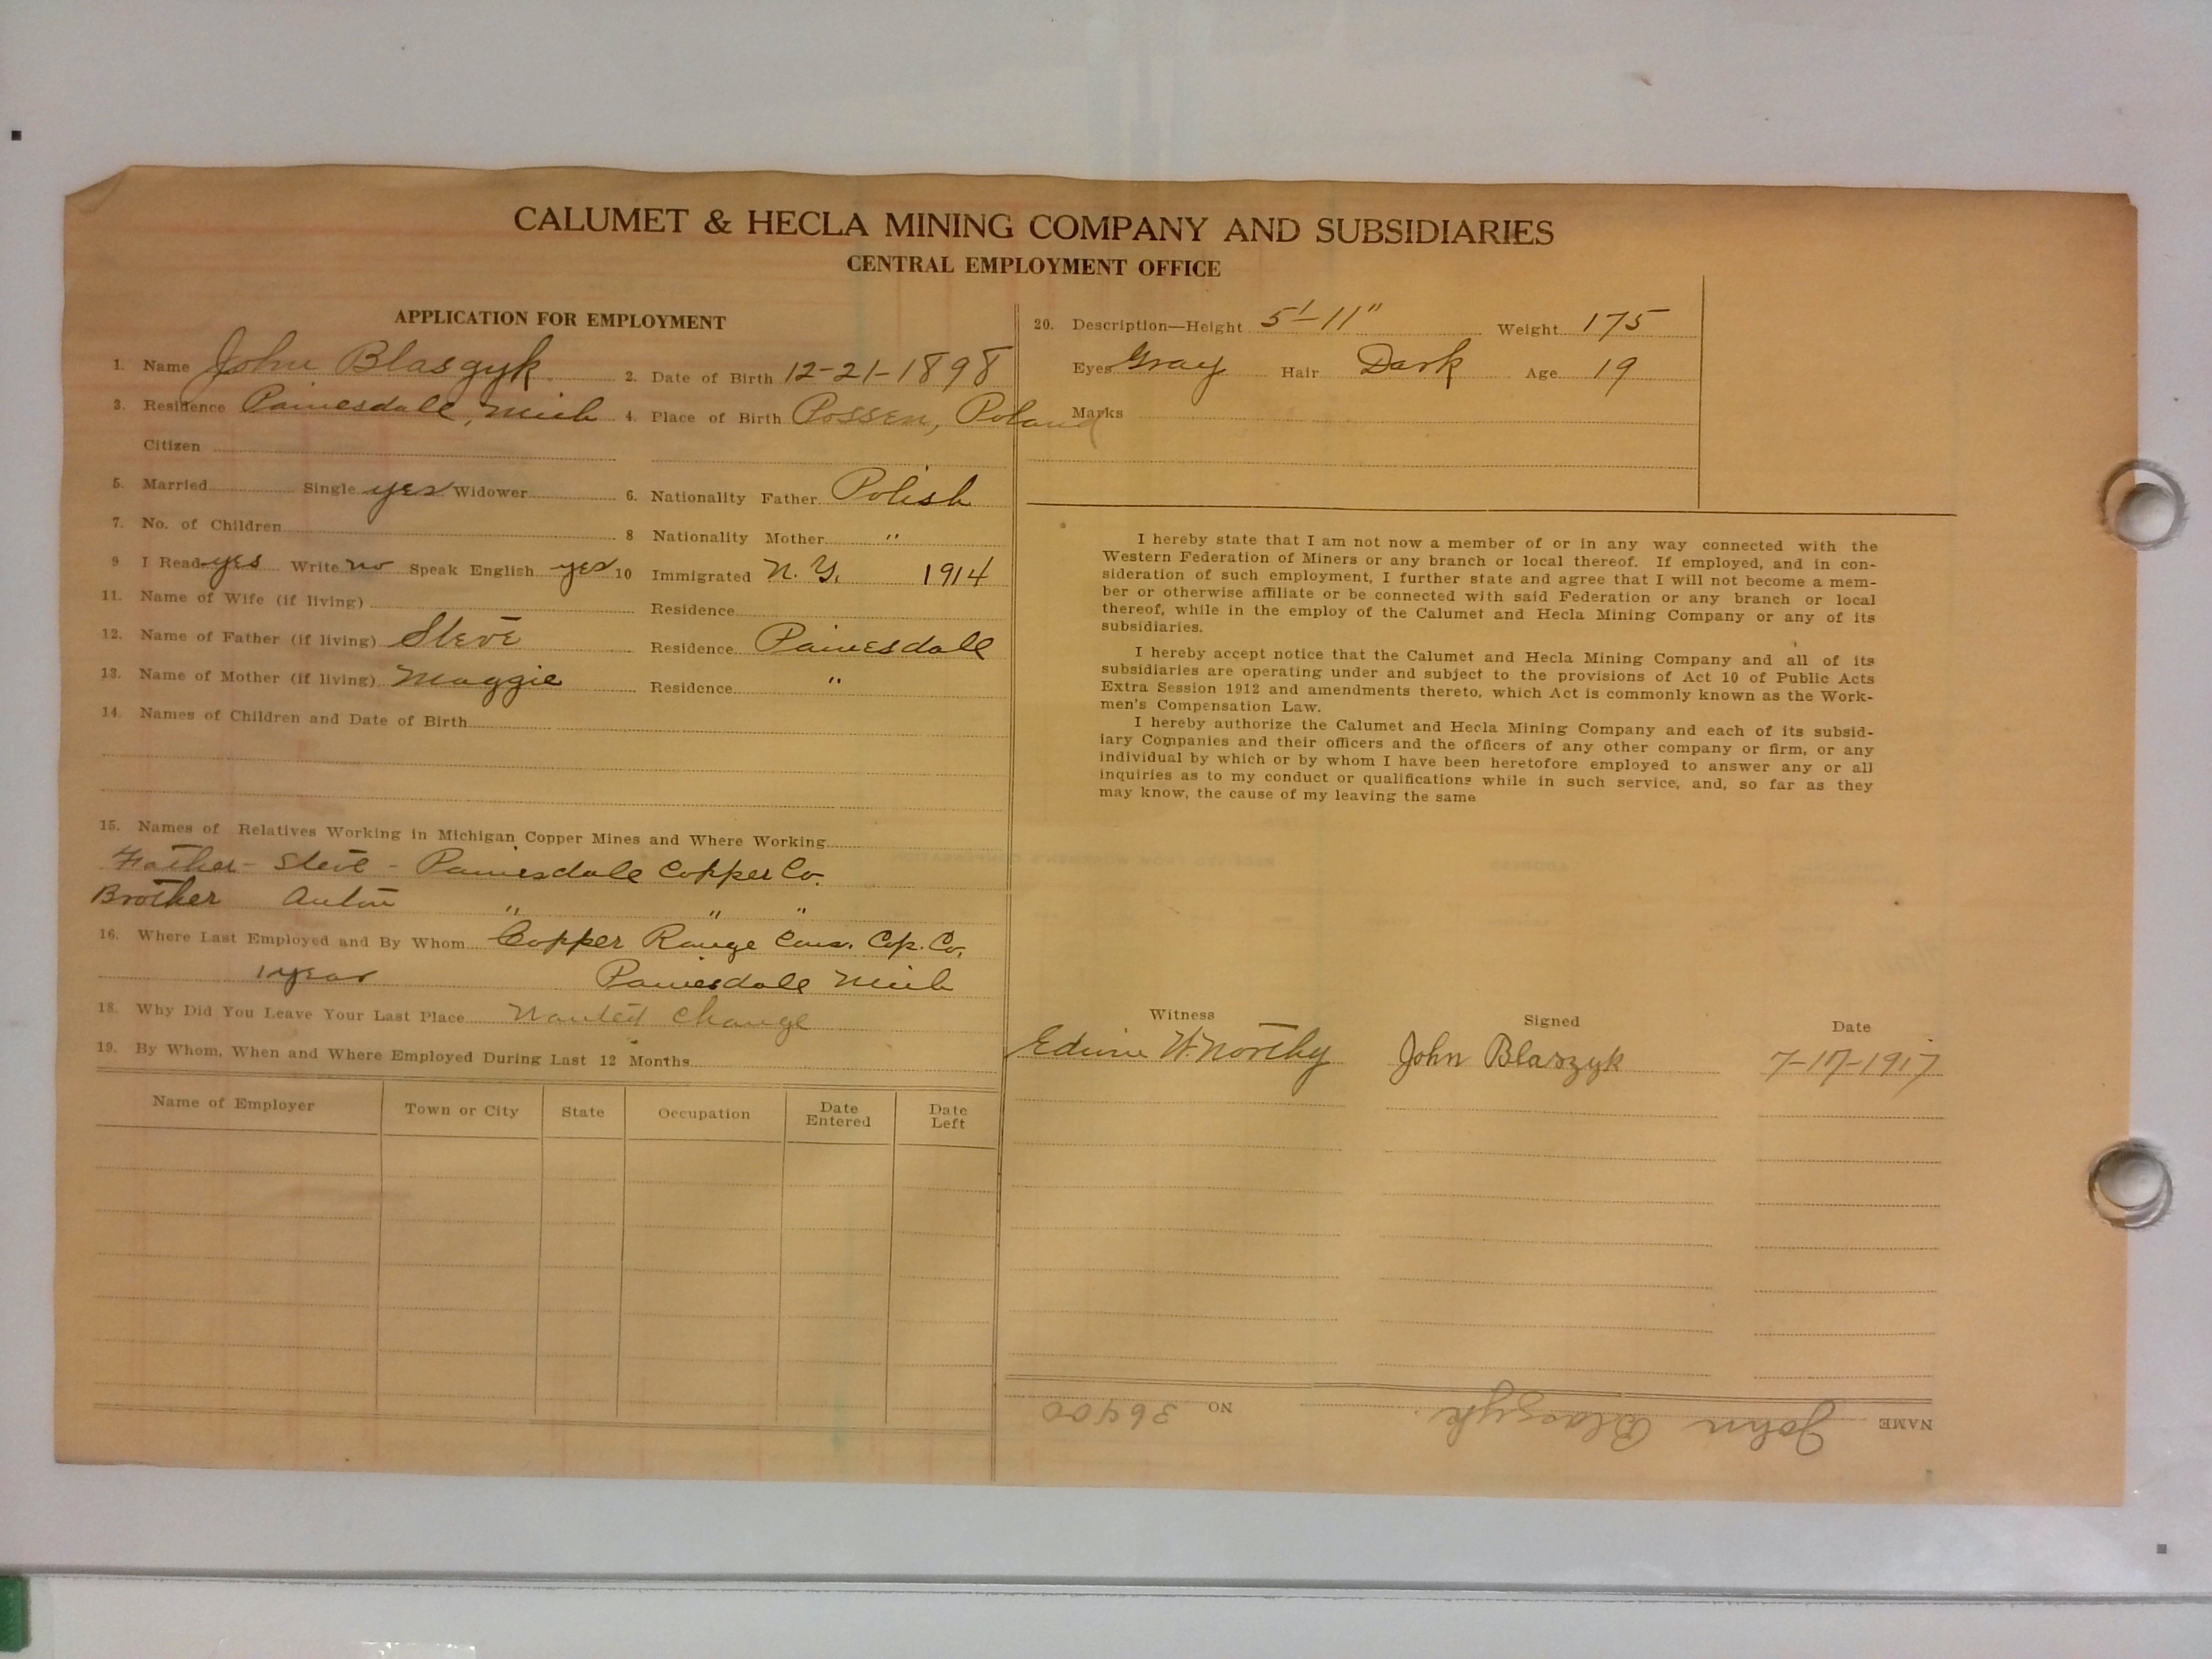 CALUMET & HECLA MINING COMPANY AND SUBSIDIARIES
CENTRAL EMPLOYMENT OFFICE
APPLICATION FOR EMPLOYMENT
1. Name John Blasgyk 2. Date of Birth 12-21-1898
3. Residence Painesdale, Mich 4. Place of Birth Possen, Poland
Citizen
5. Married Single yes Widower 6. Nationality Father Polish
7. No. of Children 8 Nationality Mother "
9 I Read yes Write no Speak English yes 10 Immigrated N.Y. 1914
11. Name of Wife (if living) Residence
12. Name of Father (if living) Steve Residence Painesdale
13. Name of Mother (if living) Maggie Residence "
14. Names of Children and Date of Birth
15. Names of Relatives Working in Michigan Copper Mines and Where Working
Father - Steve - Painesdale Copper Co.
Brother Anton " " "
16. Where Last Employed and By Whom Copper Range Cons. Cop. Co.
1 year Painesdale Mich
18. Why Did You Leave Your Last Place Wanted Change
19. By Whom, When and Where Employed During Last 12 Months
Name of Employer Town or City State Occupation Date Entered Date Left
20. Description—Height 5'-11" Weight 175
Eyes Gray Hair Dark Age 19
Marks
I hereby state that I am not now a member of or in any way connected with the
Western Federation of Miners or any branch or local thereof. If employed, and in con-
sideration of such employment, I further state and agree that I will not become a mem-
ber or otherwise affiliate or be connected with said Federation or any branch or local
thereof, while in the employ of the Calumet and Hecla Mining Company or any of its
subsidiaries.
I hereby accept notice that the Calumet and Hecla Mining Company and all of its
subsidiaries are operating under and subject to the provisions of Act 10 of Public Acts
Extra Session 1912 and amendments thereto, which Act is commonly known as the Work-
men's Compensation Law.
I hereby authorize the Calumet and Hecla Mining Company and each of its subsid-
iary Companies and their officers and the officers of any other company or firm, or any
individual by which or by whom I have been heretofore employed to answer any or all
inquiries as to my conduct or qualifications while in such service, and, so far as they
may know, the cause of my leaving the same
Witness Signed Date
Edwin W. Northy John Blaszyk 7-17-1917
NAME John Blaszyk. NO 36400